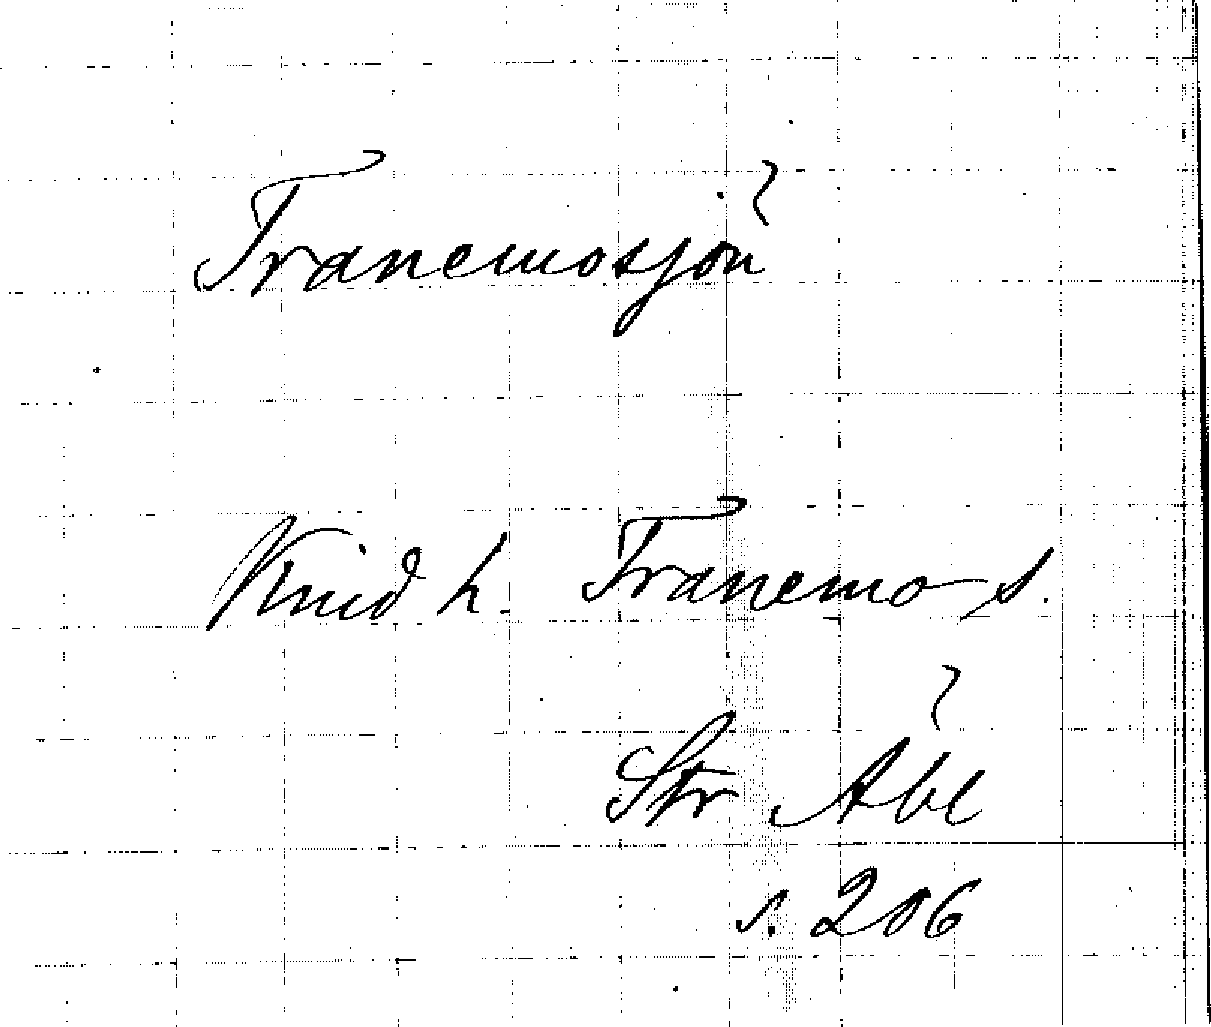 Tranemosjön
Kind h. Tranemo s.
Str Äbl
s. 206